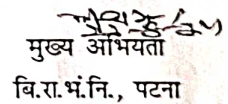 मुख्य अभियंता
बि.रा.भं.नि., पटना